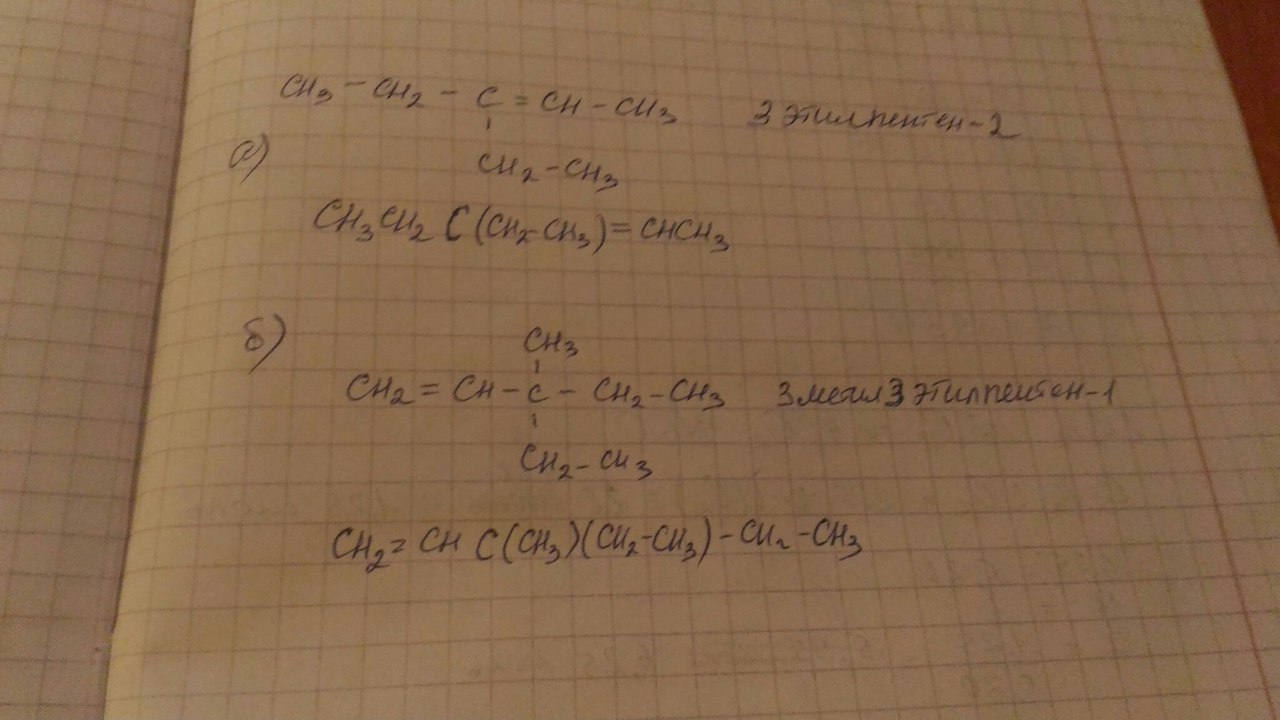 CH₃ - CH₂ - C = CH - CH₃ 3 этилпентен-2
а)
CH₂ - CH₃
CH₃CH₂ C (CH₂-CH₃) = CHCH₃
б)
CH₃
CH₂ = CH - C - CH₂ - CH₃ 3 метил 3 этилпентен-1
CH₂ - CH₃
CH₂ = CH C (CH₃)(CH₂-CH₃) - CH₂ - CH₃